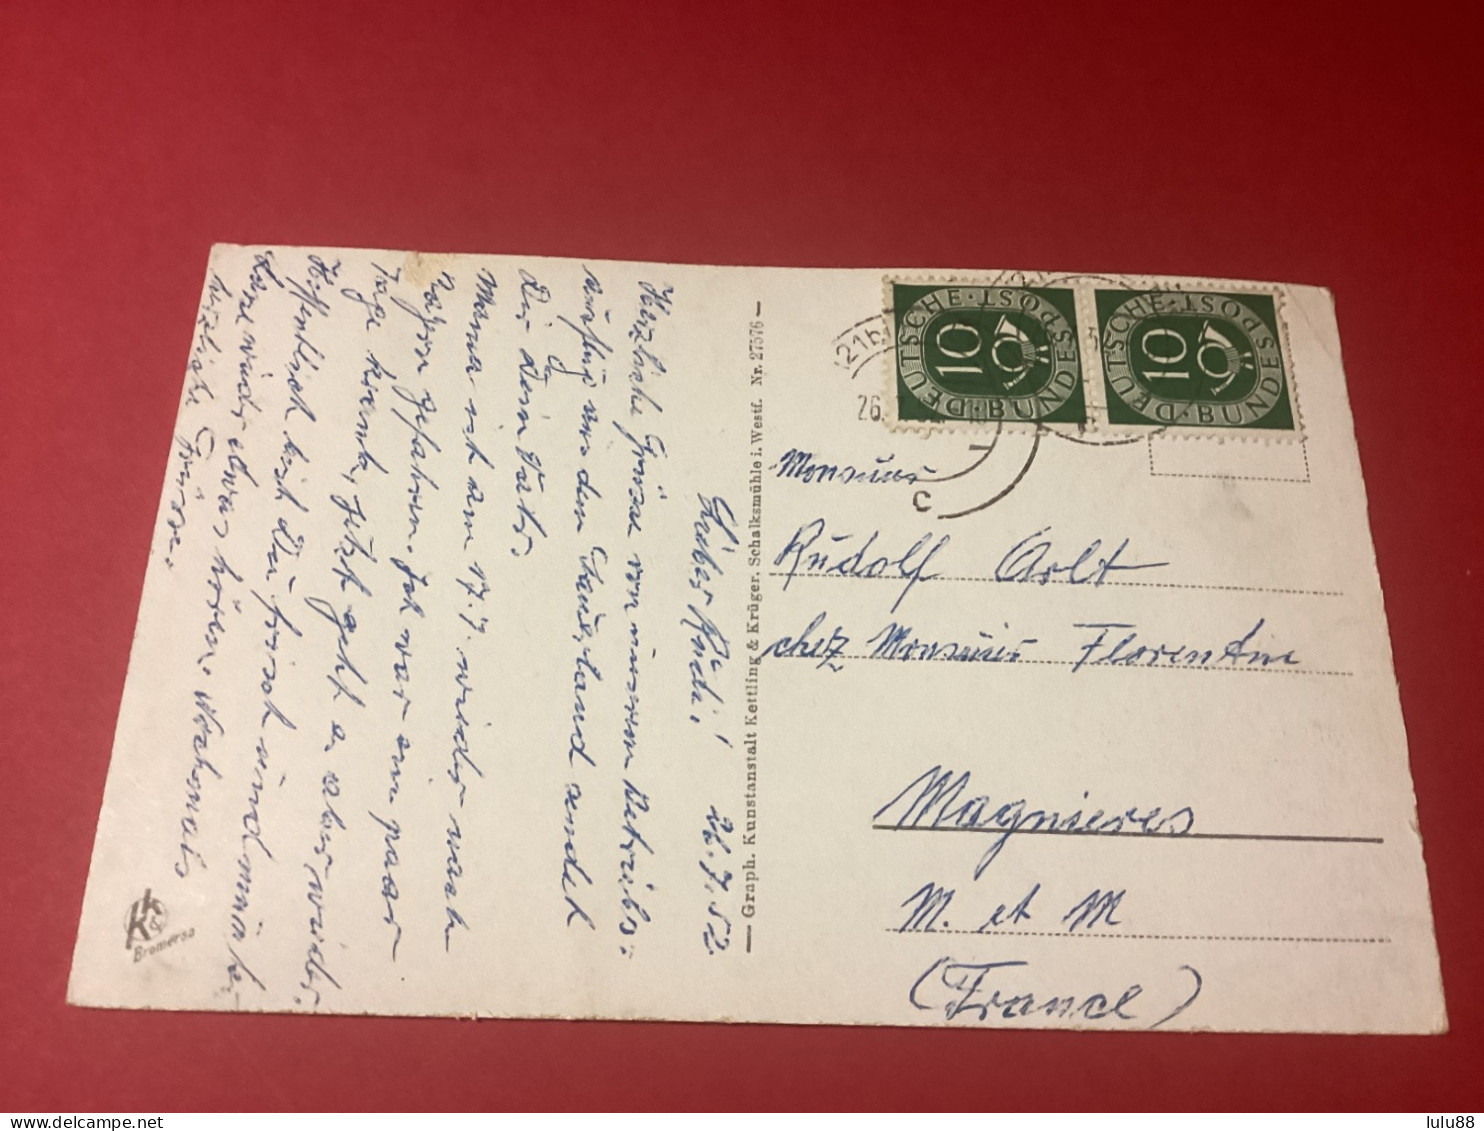 Lieber Rudi! 26.7.52
Herzliche Grüsse von unserem Betriebs-
ausflug aus dem Sauerland sendet
Dir Dein Vater.
Mama ist am 17.7. wieder nach
gefahren. Ich war ein paar
Tage krank, jetzt geht es aber wieder.
Hoffentlich bist Du frisch und munter.
Lass wieder etwas hören. Nochmals
herzliche Grüsse.
K&K
Bromersa
Graph. Kunstanstalt Kettling & Krüger, Schalksmühle i. Westf. Nr. 27576
DEUTSCHE BUNDESPOST 10
DEUTSCHE BUNDESPOST 10
(21b)
26.
c
Monsieur
Rudolf Arlt
chez Monsieur Florentin
Magnieres
M. et M
(France)
lulu88